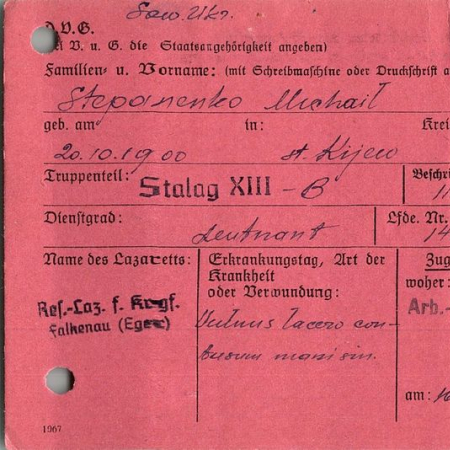 Sow. Ukr.
d. V. G.
bei V. u. G. die Staatsangehörigkeit angeben)
Familien- u. Vorname: (mit Schreibmaschine oder Druckschrift a
Stepanenko Michail
geb. am in: Krei
20.10.1900 st. Kijew
Truppenteil: Stalag XIII - B Beschri
Dienstgrad: Leutnant Lfde. Nr.
14
Name des Lazaretts: Erkrankungstag, Art der Krankheit oder Verwundung: Zug
woher:
Res.-Laz. f. Krgf.
Falkenau (Eger)
Arb.-
Vulnus lacero con-
tusum manis sin.
am:
1967